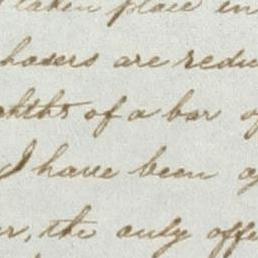 taken place in
chasers are redu
ghths of a bar of
I have been a
er, the only offi